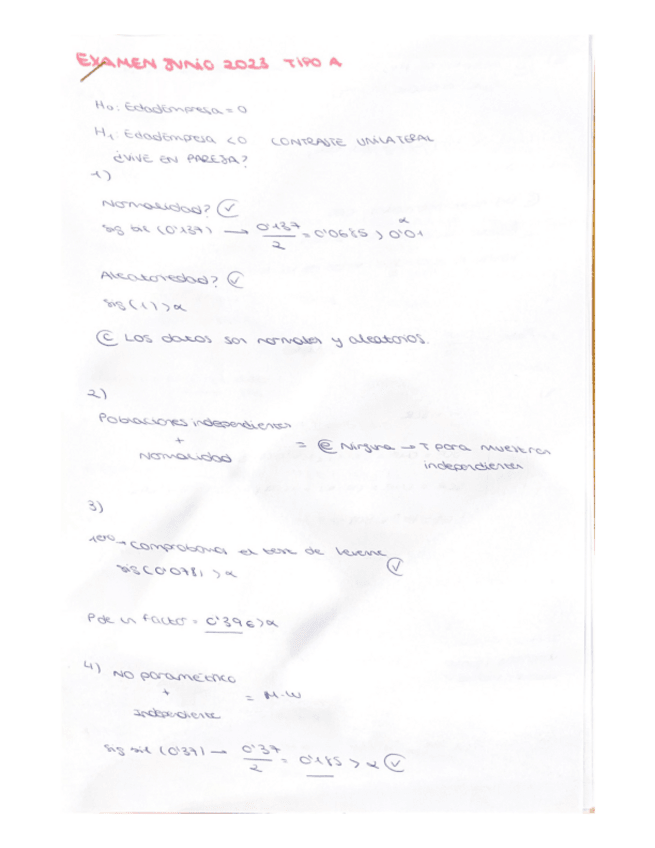 EXAMEN JUNIO 2023 TIPO A
H₀: EdadEmpresa = 0
H₁: EdadEmpresa < 0 CONTRASTE UNILATERAL
¿VIVE EN PAREJA?
1)
Normalidad? ✓
sig bil (0'137) → 0'137/2 = 0'0685 > 0'01 α
Aleatoriedad? ✓
sig (1) > α
C Los datos son normales y aleatorios.
2)
Poblaciones independientes
+
Normalidad
= e Ninguna → T para muestras
independientes
3)
1ero → comprobamos el test de Levene
sig (0'078) > α ✓
P de un factor = 0'396 > α
4) No paramétrico
+
Independiente
= M-W
sig bil (0'37) → 0'37/2 = 0'185 > α ✓